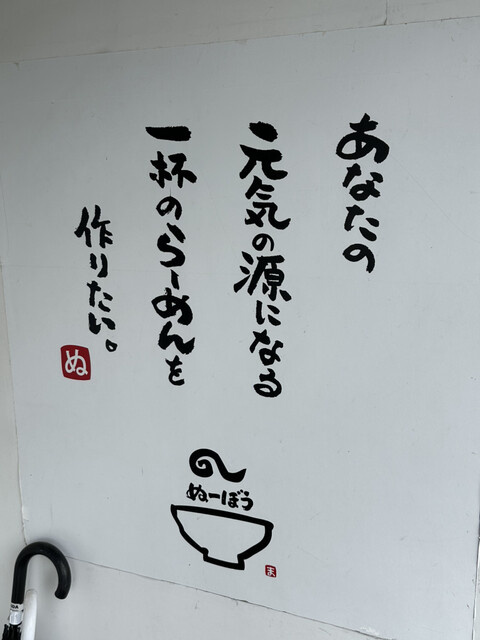 あなたの
元気の源になる
一杯のらーめんを
作りたい。
ぬ
ぬーぼう
ま